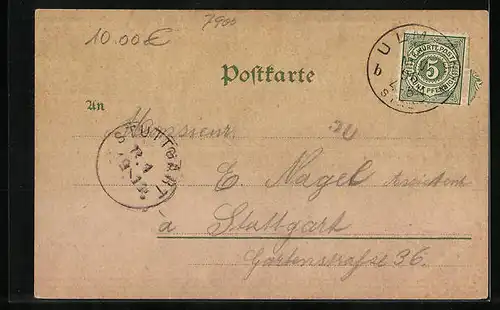 10.00€
7900
Postkarte
An
Monsieur
E. Nagel Assistent
a Stuttgart
Gartenstrasse 36.
ULM
b
5
STUTTGART